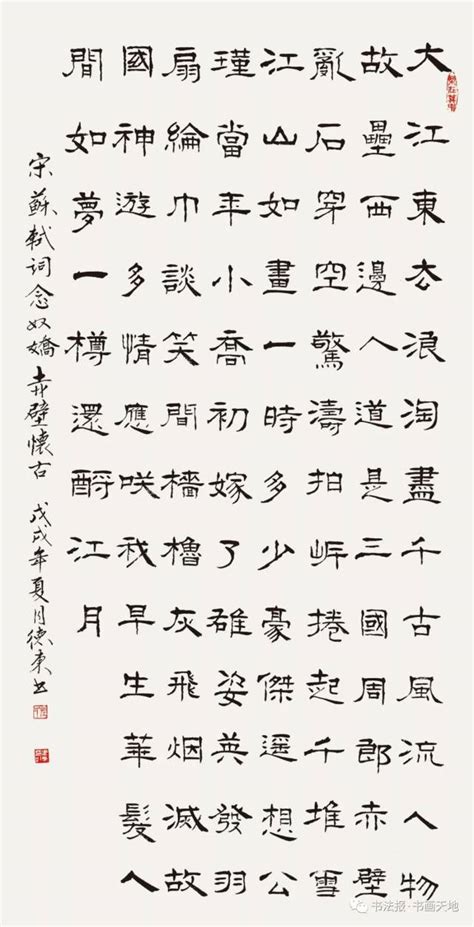 大江東去浪淘盡千古風流人物
故壘西邊人道是三國周郎赤壁
亂石穿空驚濤拍岸捲起千堆雪
江山如畫一時多少豪傑遥想公
瑾當年小喬初嫁了雄姿英發羽
扇綸巾談笑間檣櫓灰飛烟滅故
國神遊多情應咲我早生華髮人
間如夢一樽還酹江月
宋蘇軾詞念奴嬌赤壁懷古 戊戌年夏月德東书
书法报·书画天地